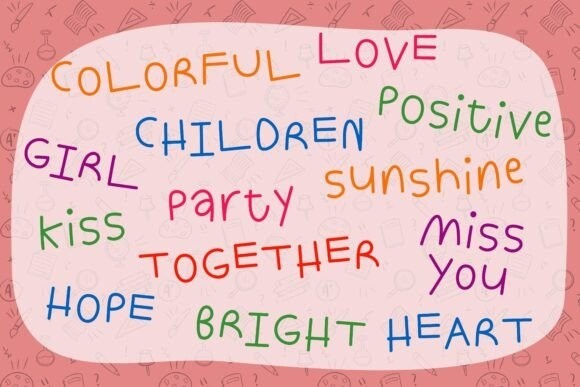 COLORFUL
LOVE
Positive
CHILDREN
GIRL
sunshine
party
kiss
Miss
You
TOGETHER
HOPE
BRIGHT
HEART